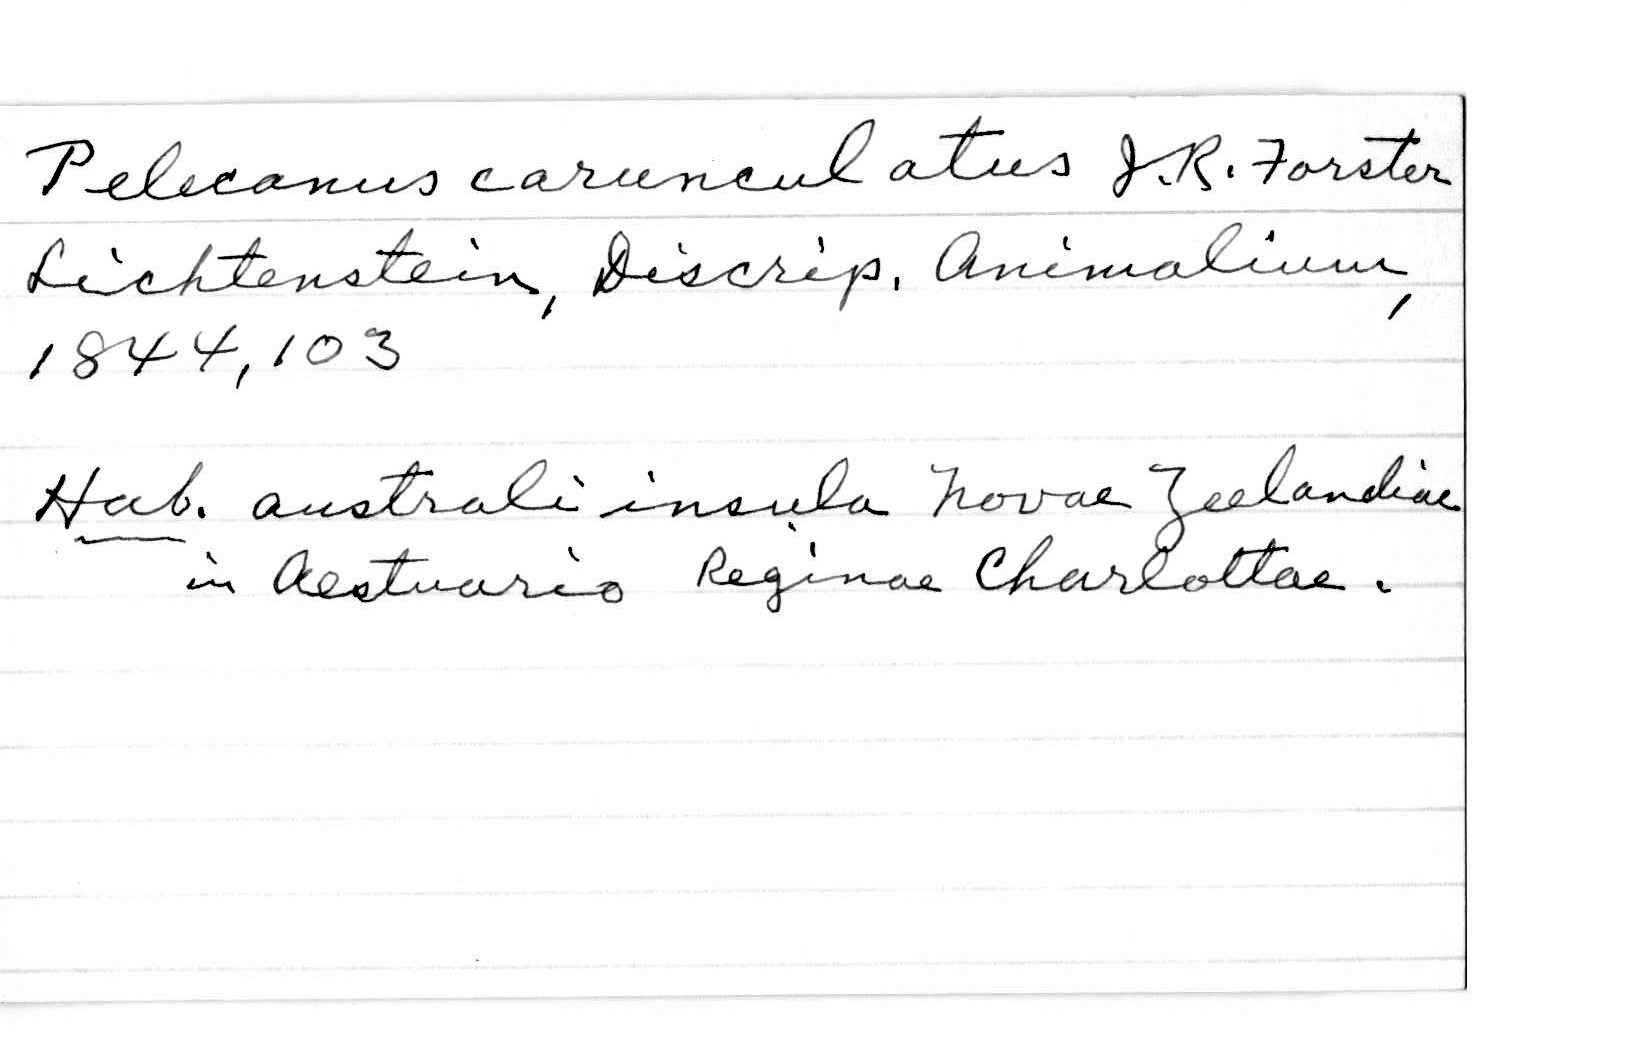 Pelecanus carunculatus J.R. Forster
Lichtenstein, Discrip. Animalium,
1844, 103
Hab. australi insula Novae Zeelandiae
in Aestuario Reginae Charlottae.